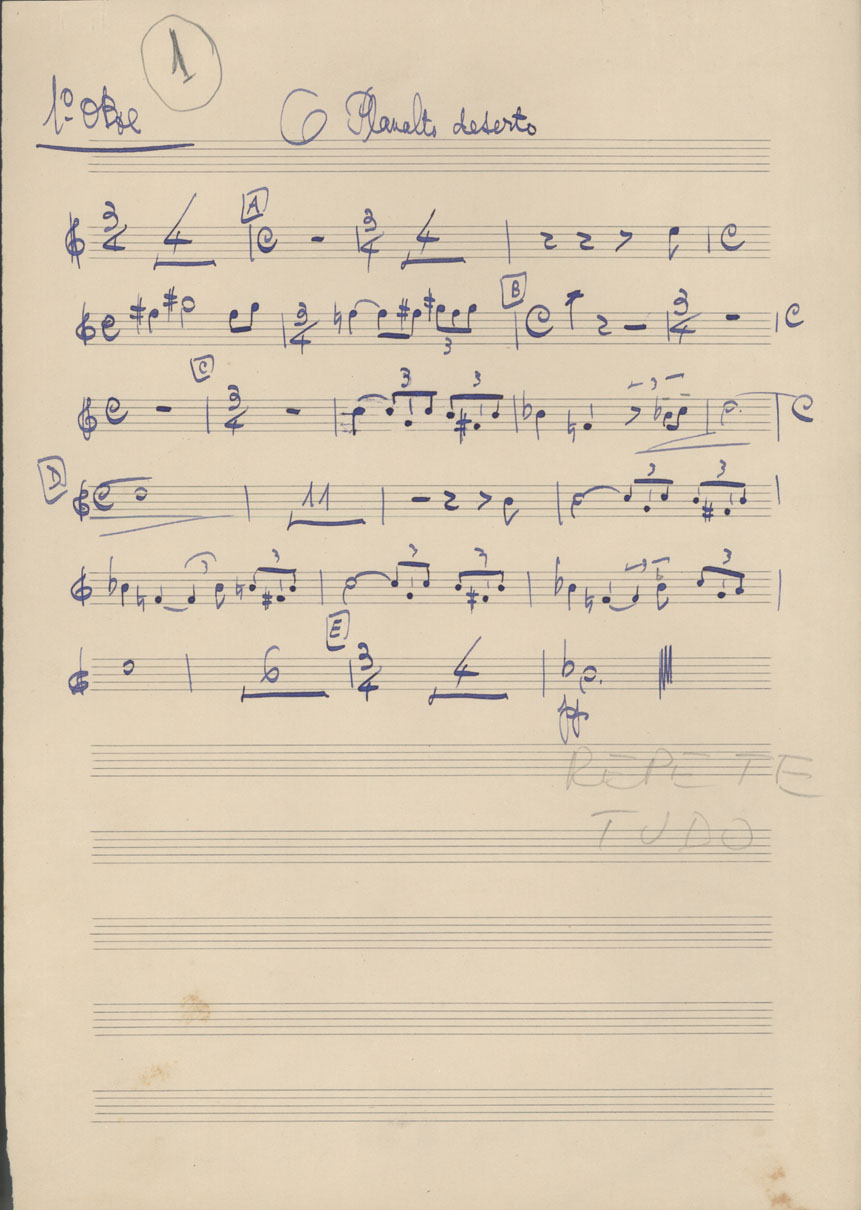 1
1º Oboe
6 Planalto deserto
A
3/4 4 C 3/4 4 C
B
C 3/4 3 C 3/4 C
C
C 3/4 3 3 3 C
D
C 11 3 3
3 3 3 3 3 3
E
6 3/4 4
pp
REPETE
TUDO